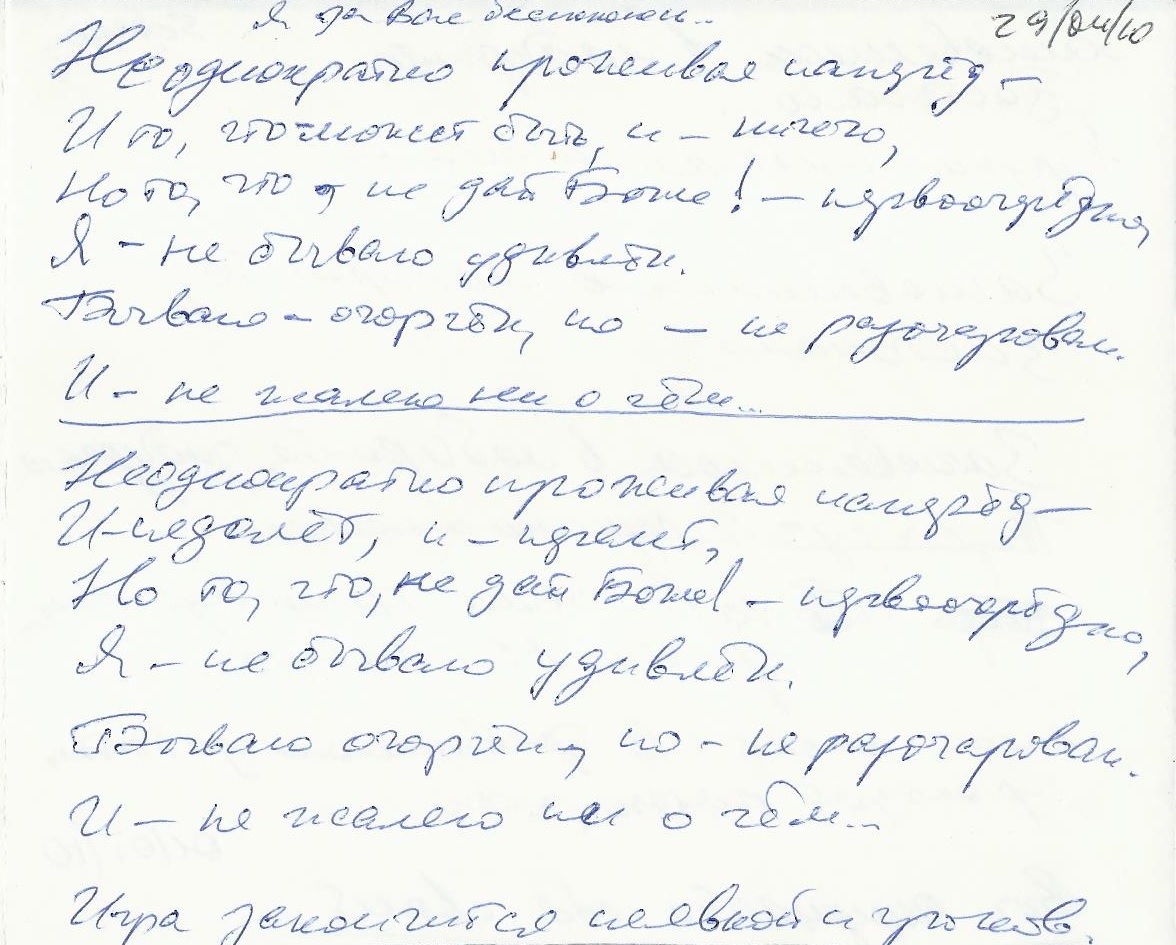 Я за Вас беспокоюсь..
29/04/10
Неоднократно проживая наперёд –
И то, что может быть, и – ничего,
Но то, что, не дай Боже! – первоочерёдно,
Я – не бываю удивлён.
Бываю – огорчён, но – не разочарован.
И – не жалею ни о чём...
Неоднократно проживая наперёд –
И – недолёт, и – перелёт,
Но то, что, не дай Боже! – первоочерёдно,
Я – не бываю удивлён.
Бываю огорчён, но – не разочарован.
И – не жалею ни о чём...
Игра закончится неявкой игроков.